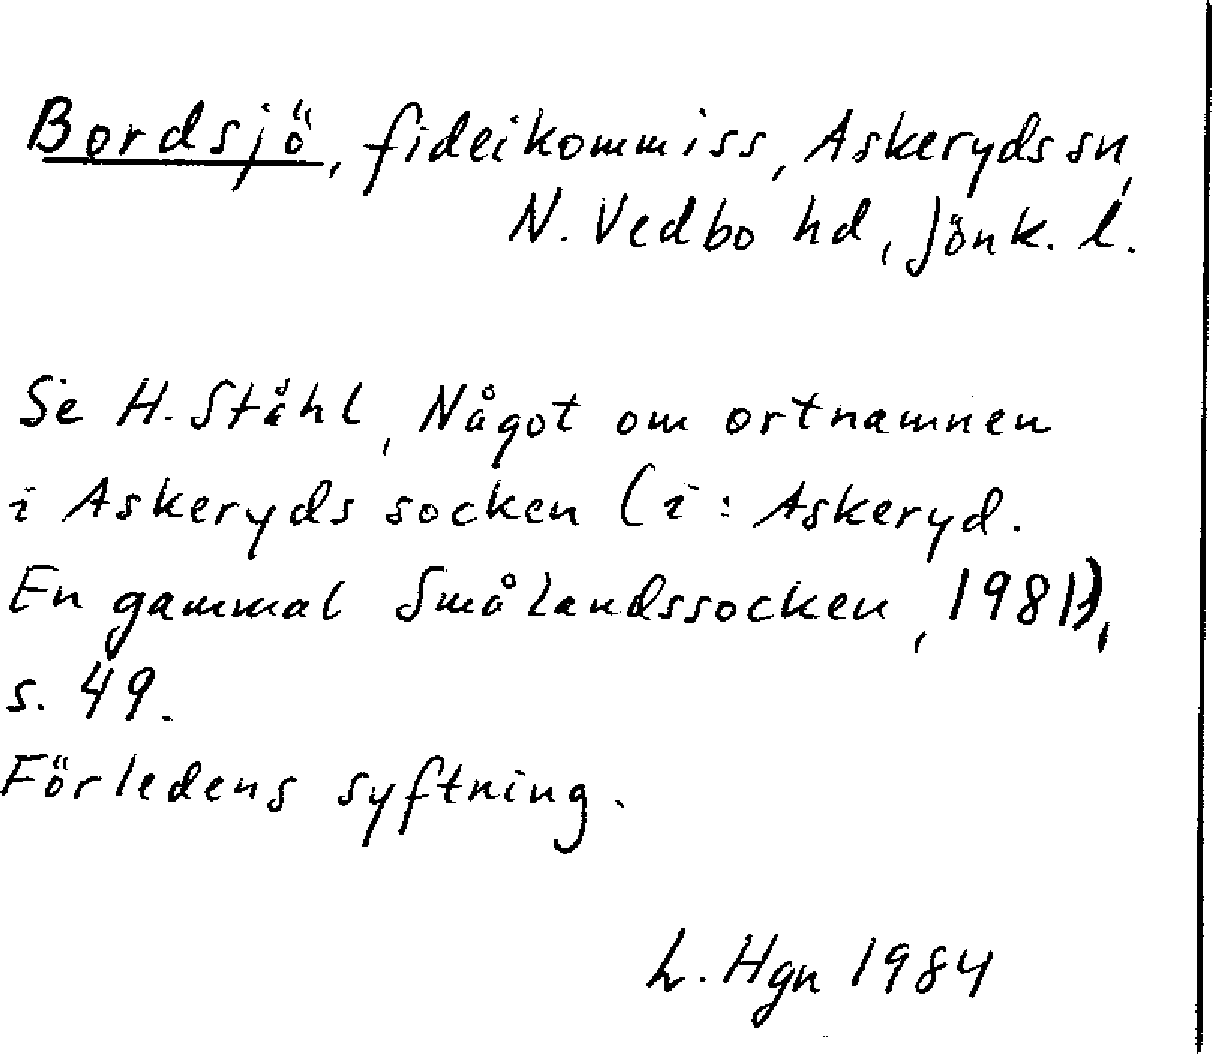 Bordsjö, fideikommiss, Askeryds sn,
N. Vedbo hd, Jönk. l.
Se H. Ståhl, Något om ortnamnen
i Askeryds socken (i: Askeryd.
En gammal Smålandssocken, 1981),
s. 49.
Förledens syftning.
L. Hgn 1984